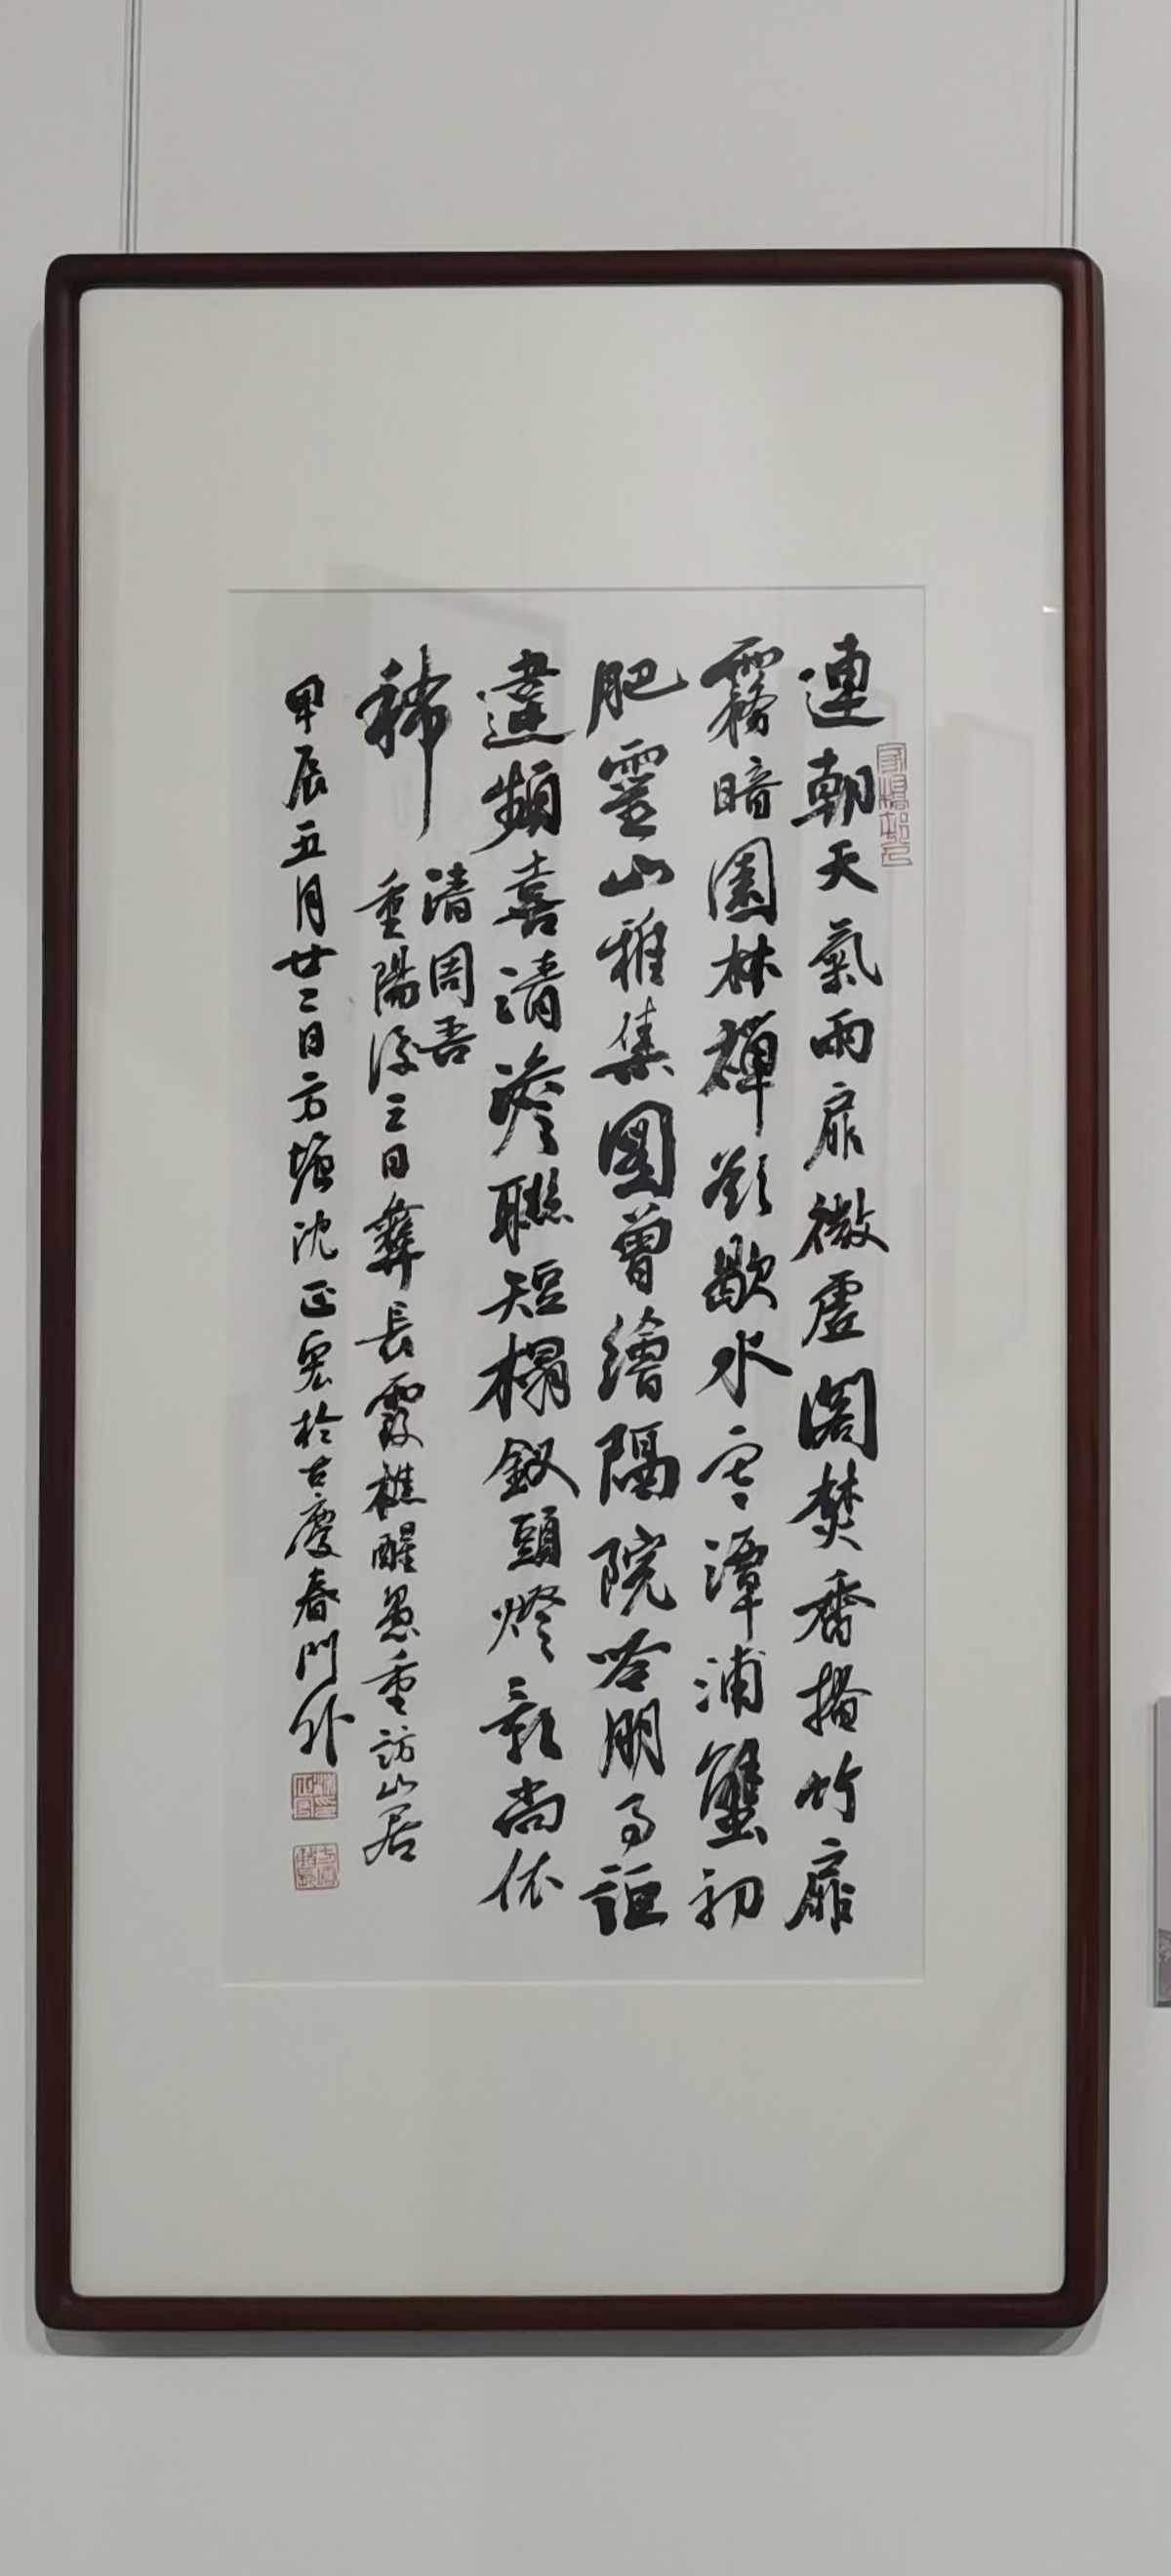 連朝天氣雨霏微虛閣焚香掩竹扉
霧暗園林禪欲歇水寒潭浦蟹初
肥靈山雅集圖曾繪隔院吟朋約詎
違頻喜清談聯短榻釵頭燈影尚依
稀
清周吾
重陽後三日彝長霞樵醒愚重訪山居
甲辰五月廿二日方塘沈正宏於古慶春門外